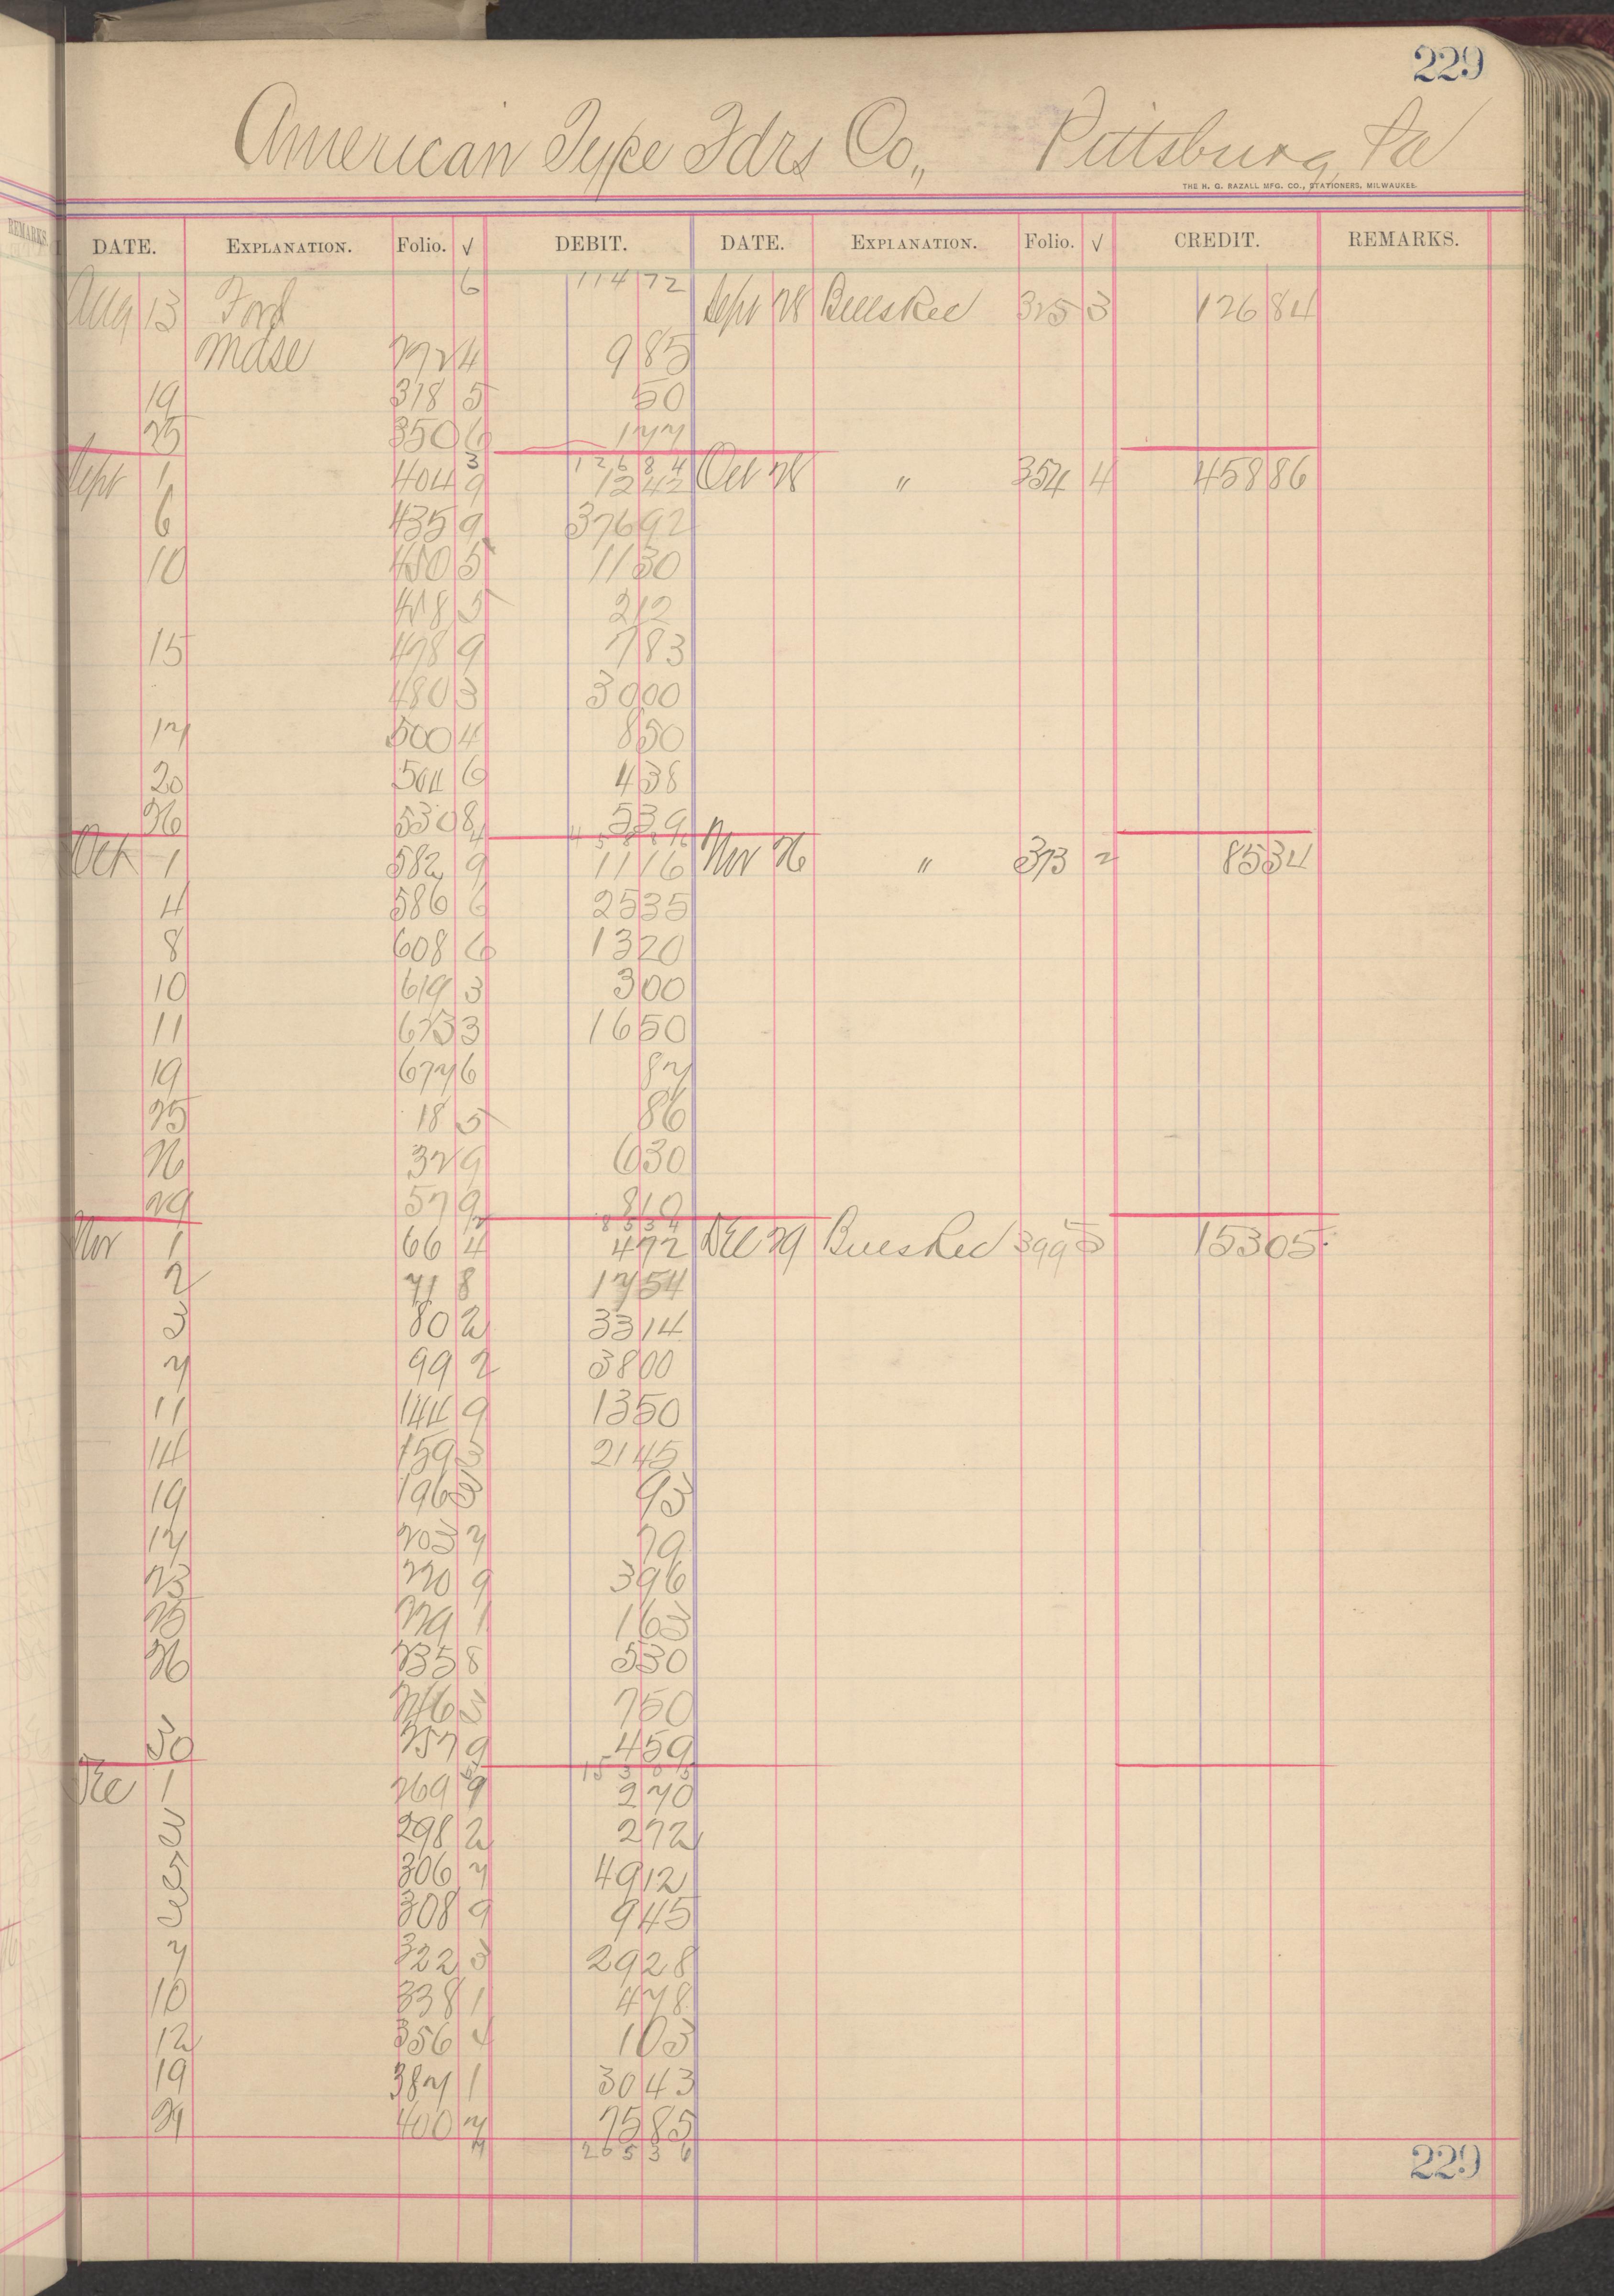 229
American Type Fdrs Co., Pittsburg, Pa
THE H. G. RAZALL MFG. CO., STATIONERS, MILWAUKEE.
DATE. EXPLANATION. Folio. √ DEBIT. DATE. EXPLANATION. Folio. √ CREDIT. REMARKS.
Aug 13 Ford 6 114 72 Sept 28 325 3 126 84
Mdse 272 4 9 85
19 318 5 50
25 350 6 1 77
3 126 84
Sept 1 404 9 12 42 Oct 28 " 354 4 458 86
6 435 9 376 92
10 450 5 11 30
5 2 12
15 478 9 7 83
480 3 30 00
17 500 4 8 50
20 504 6 4 38
26 530 8 5 39
4 458 86
Oct 1 582 9 11 16 Nov 26 " 373 2 85 34
4 586 6 25 35
8 608 6 13 20
10 619 3 3 00
11 623 3 16 50
19 677 6 87
25 18 5 86
26 32 9 6 30
29 57 9 8 10
2 85 34
Nov 1 66 4 4 72 Dec 29 399 5 153 05
2 71 8 17 54
3 80 2 33 14
7 99 2 38 00
11 144 9 13 50
14 159 3 21 45
19 196 3 93
17 203 7 79
23 220 9 3 96
25 229 1 1 63
26 235 8 5 30
246 3 7 50
30 257 9 4 59
5 153 05
Dec 1 269 9 2 70
3 298 2 2 72
5 306 7 49 12
308 9 9 45
7 322 3 29 28
10 338 1 4 78
12 356 4 1 03
19 387 1 30 43
21 400 7 75 85
7 205 36
229